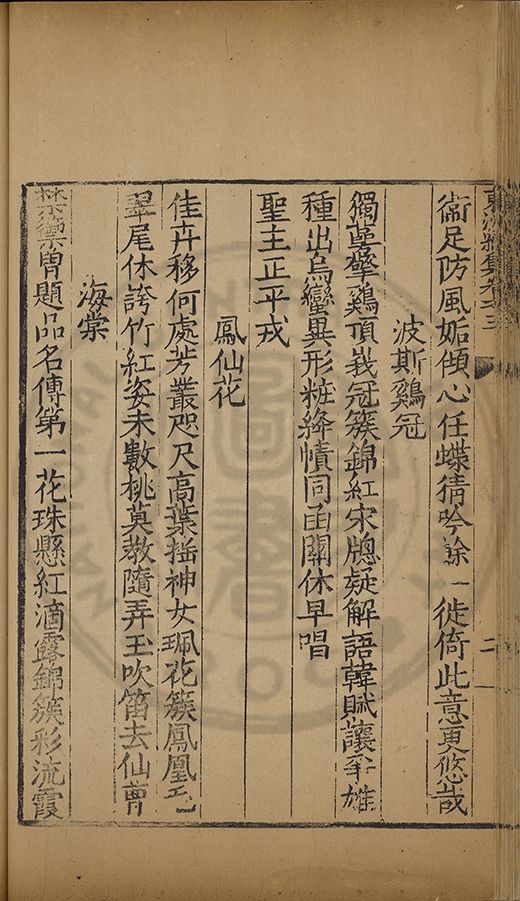 衞足防風妬傾心任蝶猜吟餘一徙倚此意更悠哉
波斯鷄冠
獨蕚擎鷄頂峩冠簇錦紅宋牕疑解語韓賦讓爭雄
種出烏蠻異形粧絳幘同函關休早唱
聖主正平戎
鳳仙花
佳卉移何處芳叢咫尺高葉揺神女珮花簇鳳凰毛
翠尾休誇竹紅姿未數桃莫教隨弄玉吹笛去仙曹
海棠
禁籞曽題品名傳第一花珠懸紅滴露錦簇彩流霞
二